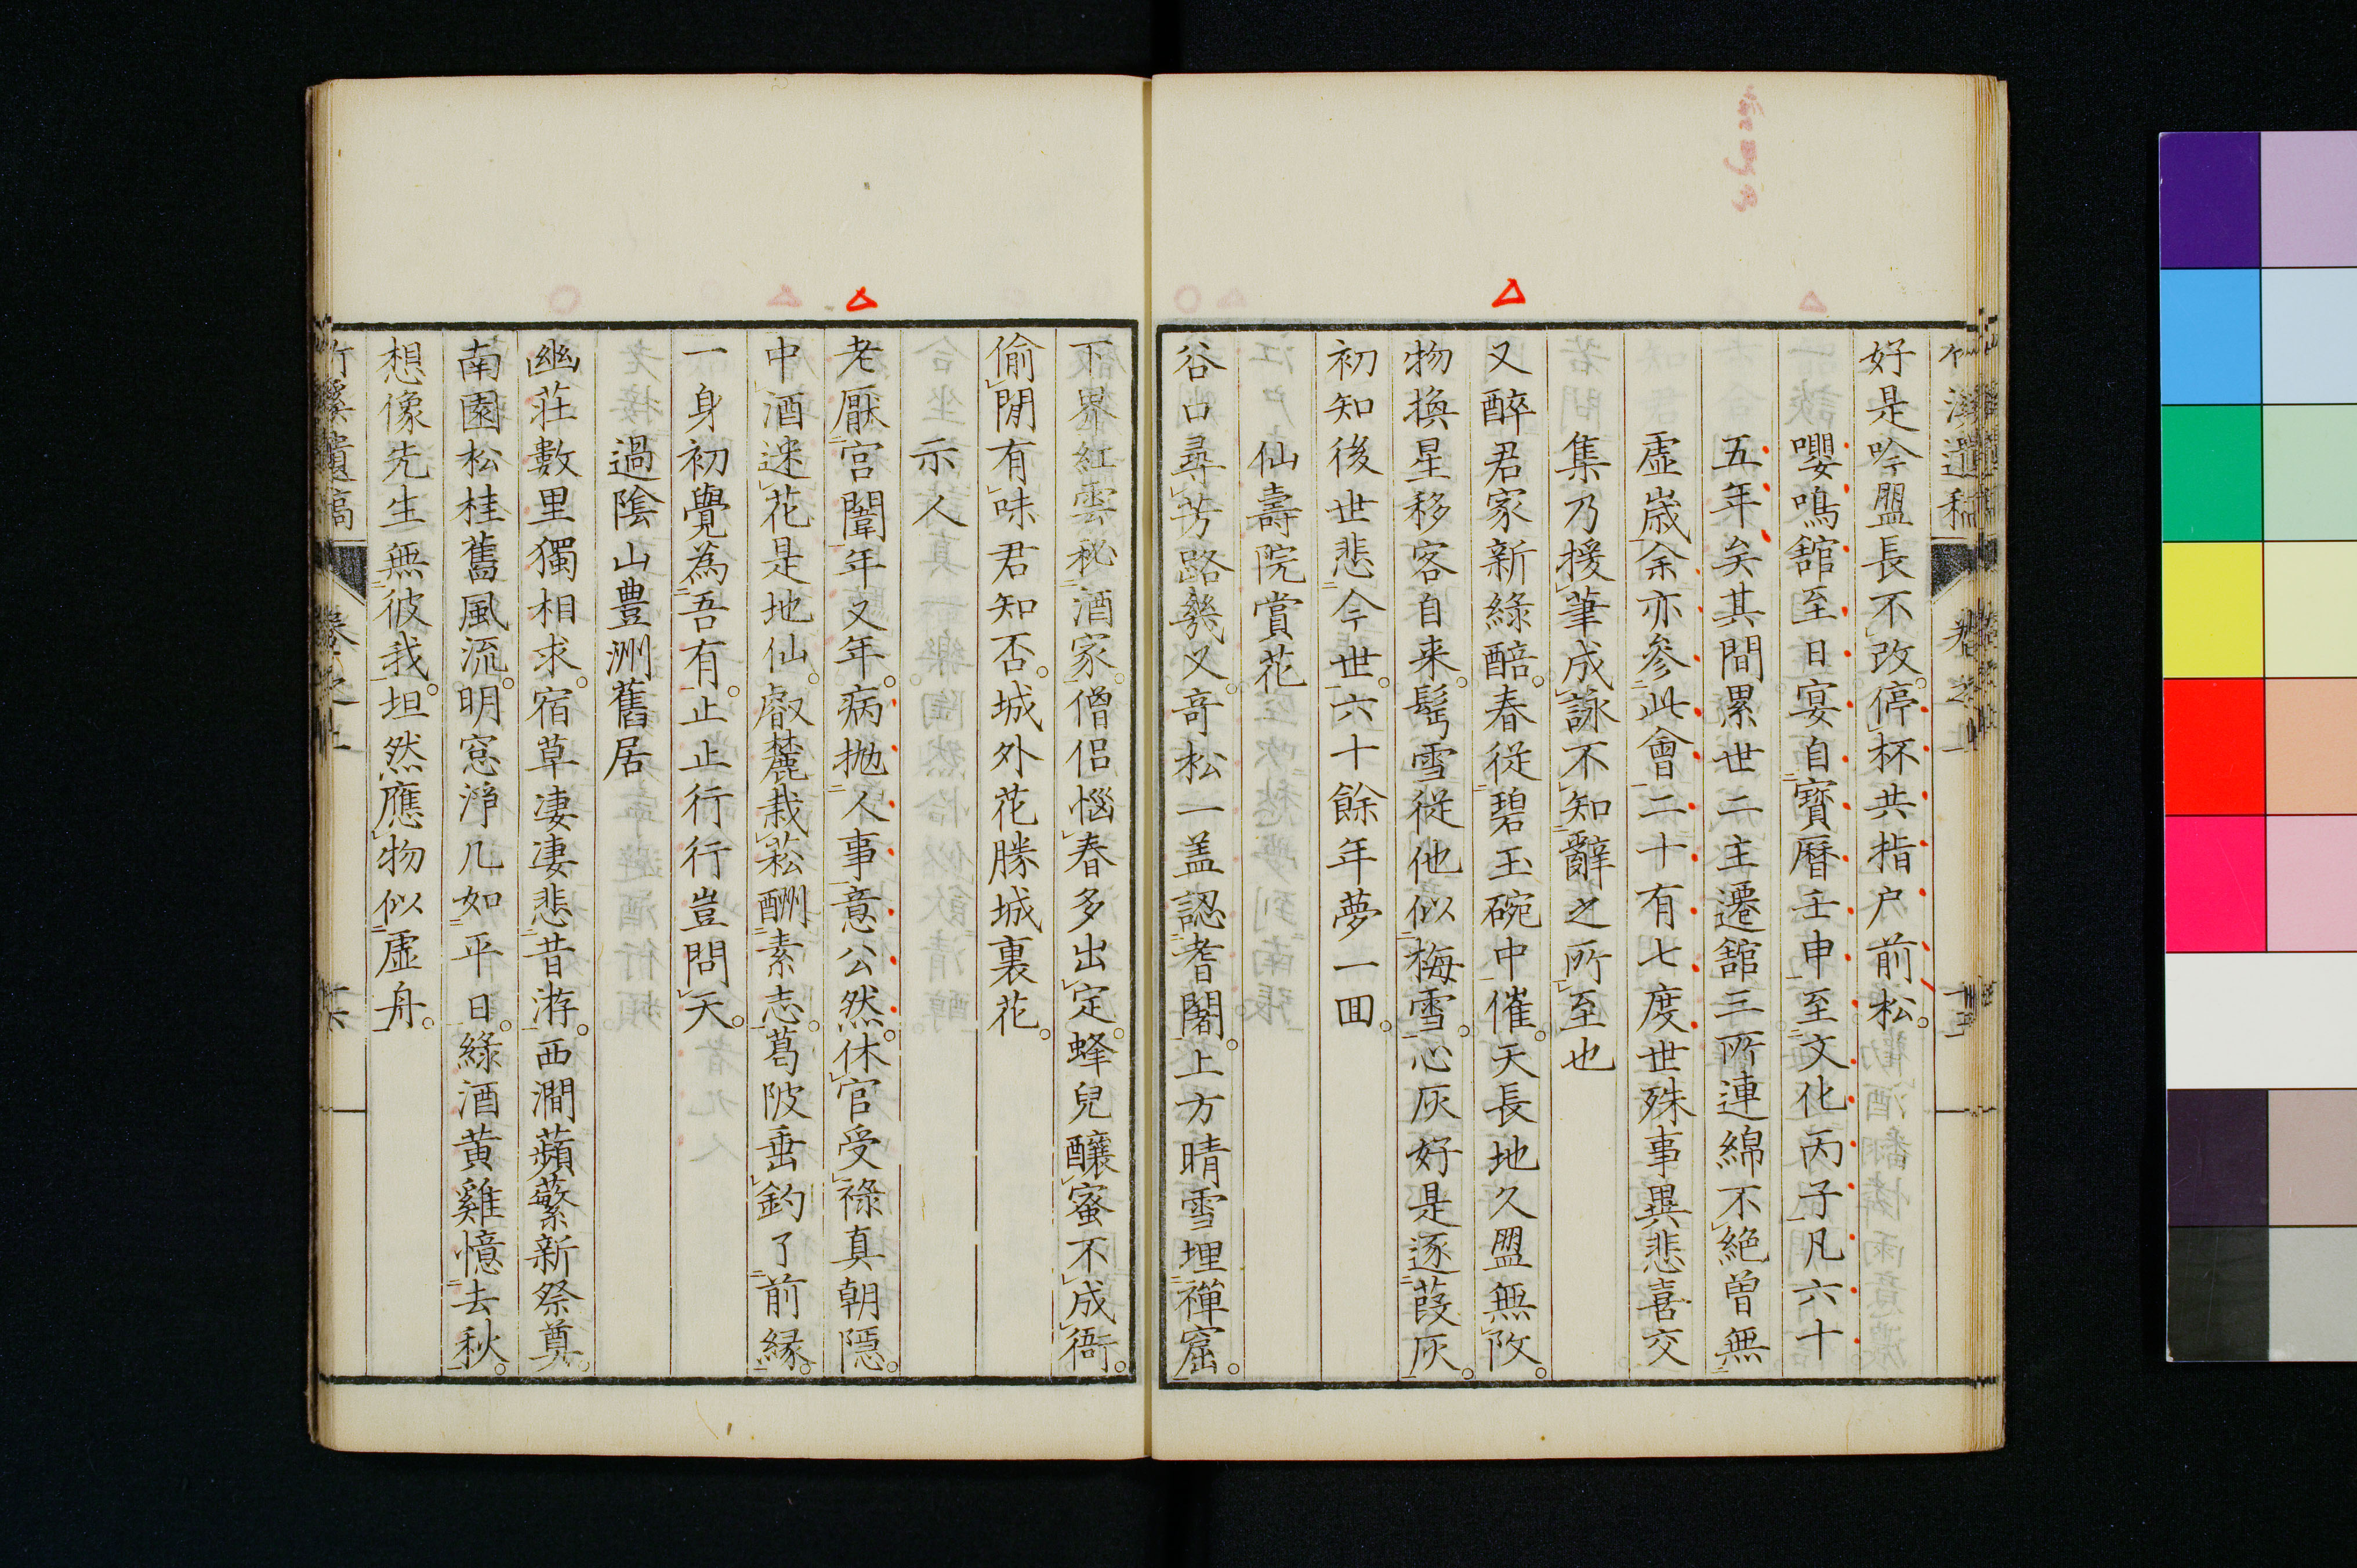 好是吟盟長不改。停杯共指户前松。
嚶鳴舘至日宴自寳曆壬申至文化丙子凡六十
五年矣其間累世二主遷舘三所連綿不絶曽無
虚歳余亦參此會二十有七度世殊事異悲喜交
集乃援筆成詠不知辭之所至也
又醉君家新綠醅。春従碧玉碗中催。天長地久盟無改。
物換星移客自来。髩雪従他似梅雪。心灰好是逐葭灰。
初知後世悲今世。六十餘年夢一囬。
仙壽院賞花
谷口尋芳路幾又。奇松一盖認耆闍。上方晴雪埋禪窟。
下界紅雲秘酒家。僧侣惱春多出定。蜂兒釀蜜不成衙。
偷閒有味君知否。城外花勝城裏花。
示人
老厭宫闈年又年。病拋人事意公然。休官受祿真朝隱。
中酒迷花是地仙。叡麓栽菘酬素志。葛陂垂釣了前縁。
一身初覺為吾有。止止行行豈問天。
過隂山豊洲舊居
幽荘數里獨相求。宿草凄凄悲昔游。西澗蘋蘩新祭奠。
南園松桂舊風流。明窓淨几如平日。綠酒黄雞憶去秋。
想像先生無彼我。坦然應物似虚舟。